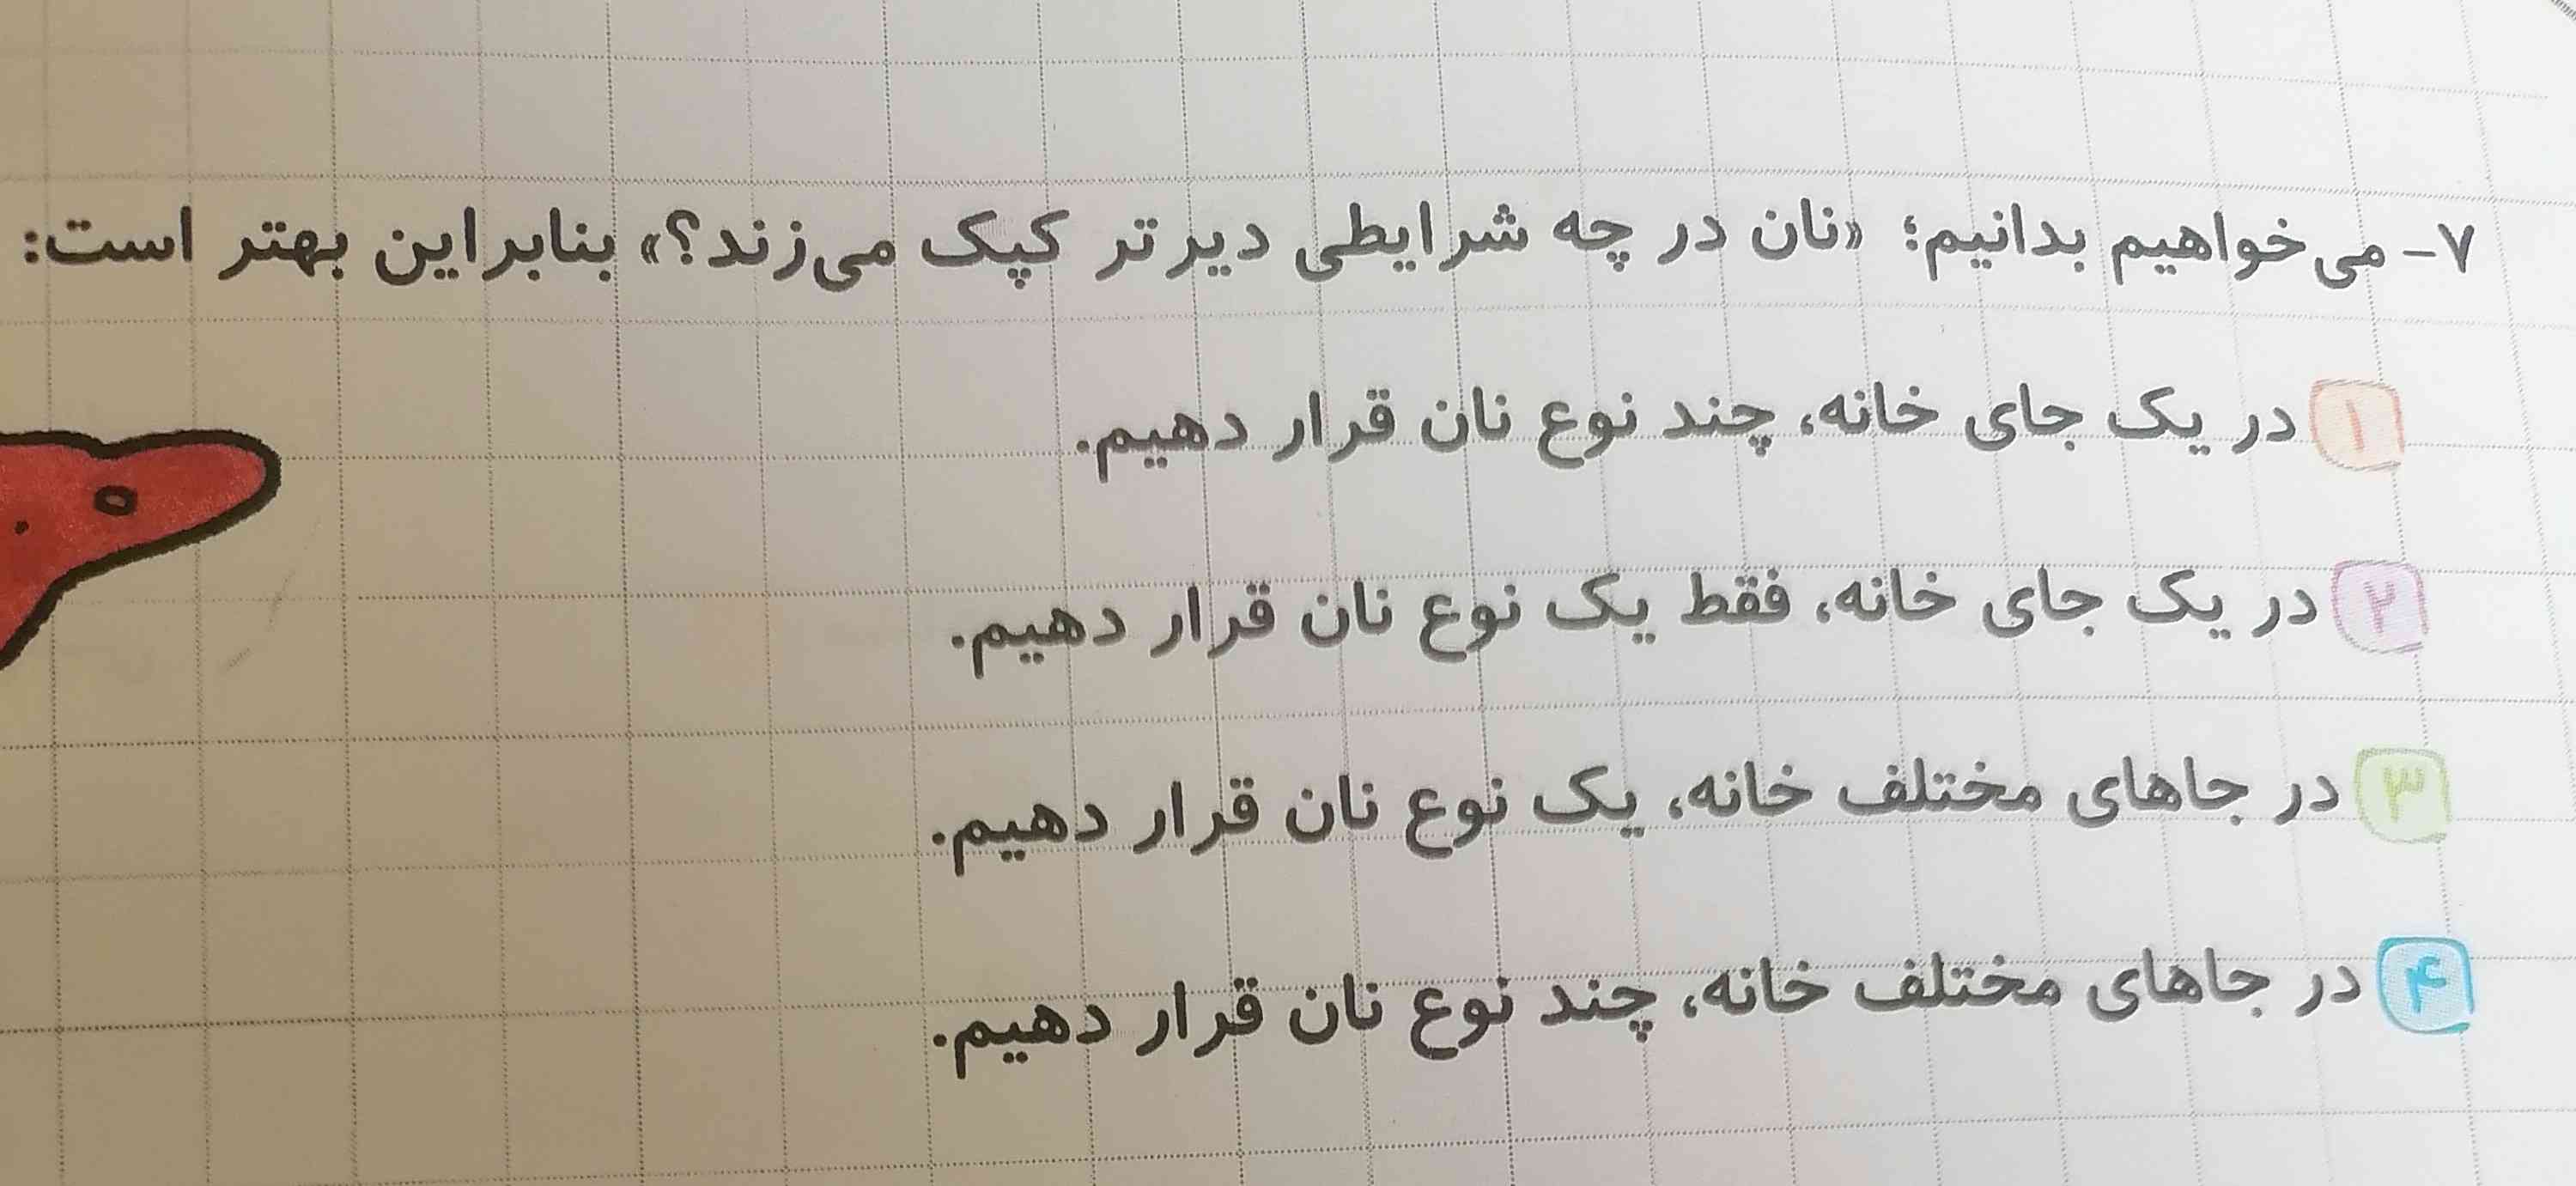 ۷- می‌خواهیم بدانیم؛ «نان در چه شرایطی دیرتر کپک می‌زند؟» بنابراین بهتر است:
۱ در یک جای خانه، چند نوع نان قرار دهیم.
۲ در یک جای خانه، فقط یک نوع نان قرار دهیم.
۳ در جاهای مختلف خانه، یک نوع نان قرار دهیم.
۴ در جاهای مختلف خانه، چند نوع نان قرار دهیم.